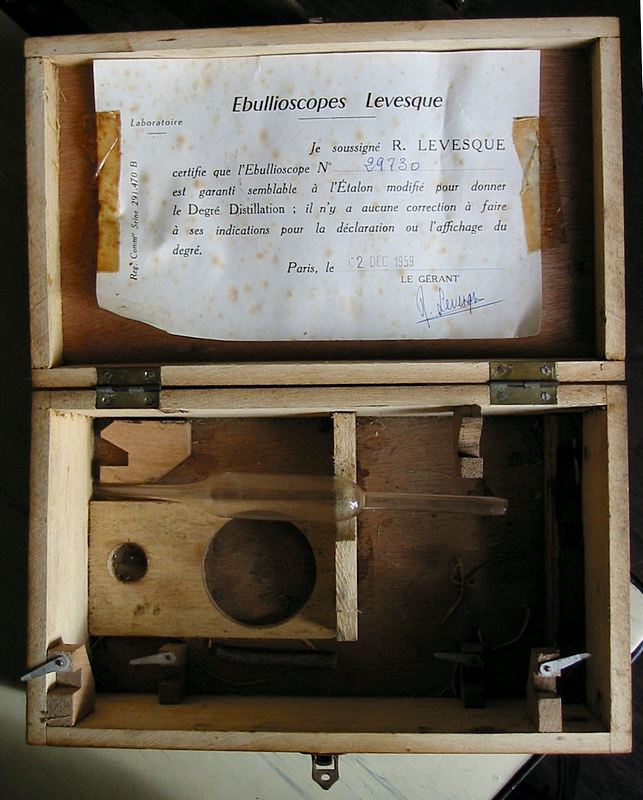 Ebullioscopes Levesque
Laboratoire
Je soussigné R. LEVESQUE
certifie que l'Ebullioscope N° 29730
est garanti semblable à l'Étalon modifié pour donner
le Degré Distillation ; il n'y a aucune correction à faire
à ses indications pour la déclaration ou l'affichage du
degré.
Paris, le 2 DEC 1959
LE GÉRANT
R. Levesque
Reg. Comm^ce Seine 291.470 B